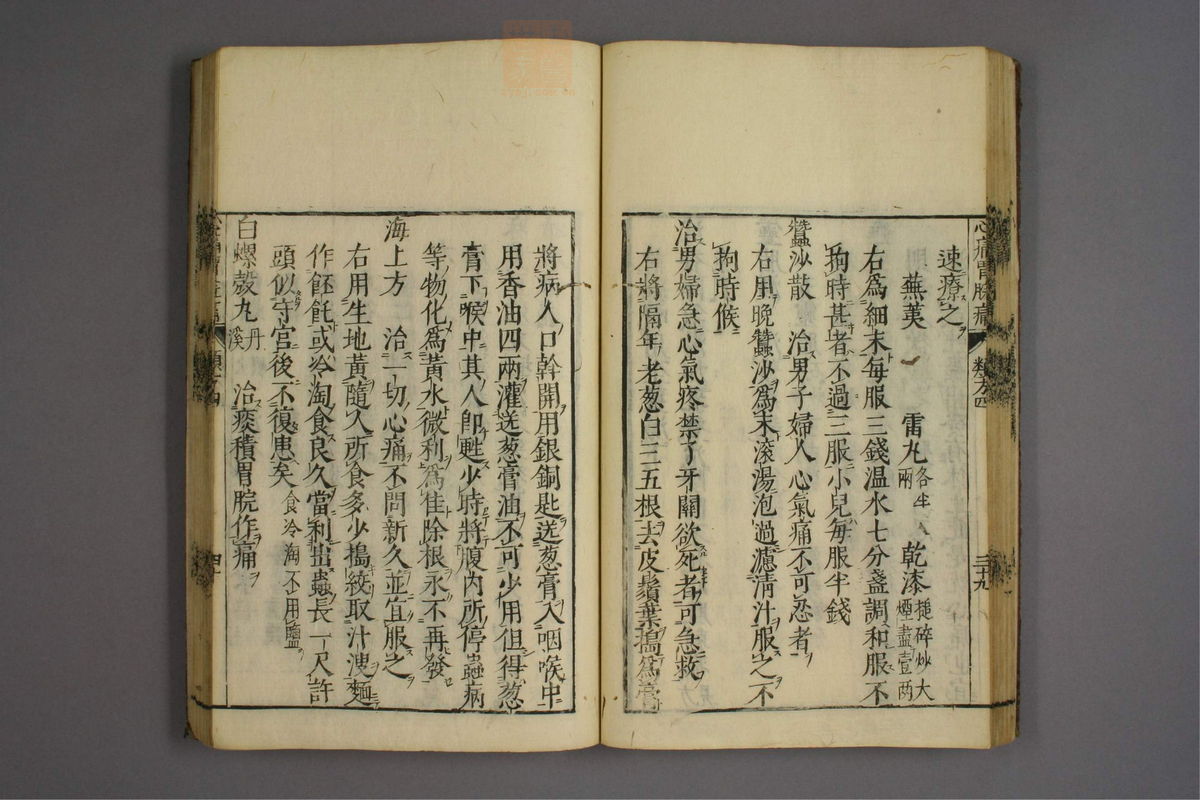 心痛胃脘痛 類方四 三十九
速療之
蕪荑 雷丸各半兩 乾漆搥碎炒大煙盡壹兩
右為細末每服三錢温水七分盞調和服不
拘時甚者不過三服小兒每服半錢
蠶沙散 治男子婦人心氣痛不可忍者
右用晚蠶沙為末滚湯泡過濾清汁服之不
拘時候
治男婦急心氣疼禁了牙關欲死者可急救
右將隔年老葱白三五根去皮鬚葉搗為膏
將病人口幹開用銀銅匙送葱膏入咽喉中
用香油四兩灌送葱膏油不可少用但得葱
膏下喉中其人即甦少時將腹內所停蟲病
等物化為黃水微利為佳除根永不再發
海上方 治一切心痛不問新久並宜服之
右用生地黃隨人所食多少搗絞取汁溲麵
作飥飥或冷淘食良久當利出蟲長一尺許
頭似守宮後不復患矣食冷淘不用鹽
白螺殼丸丹溪 治痰積胃脘作痛
四十